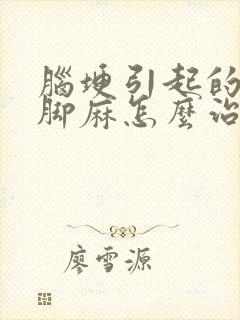 腦埂引起的
脚麻怎麼治
廖雪源